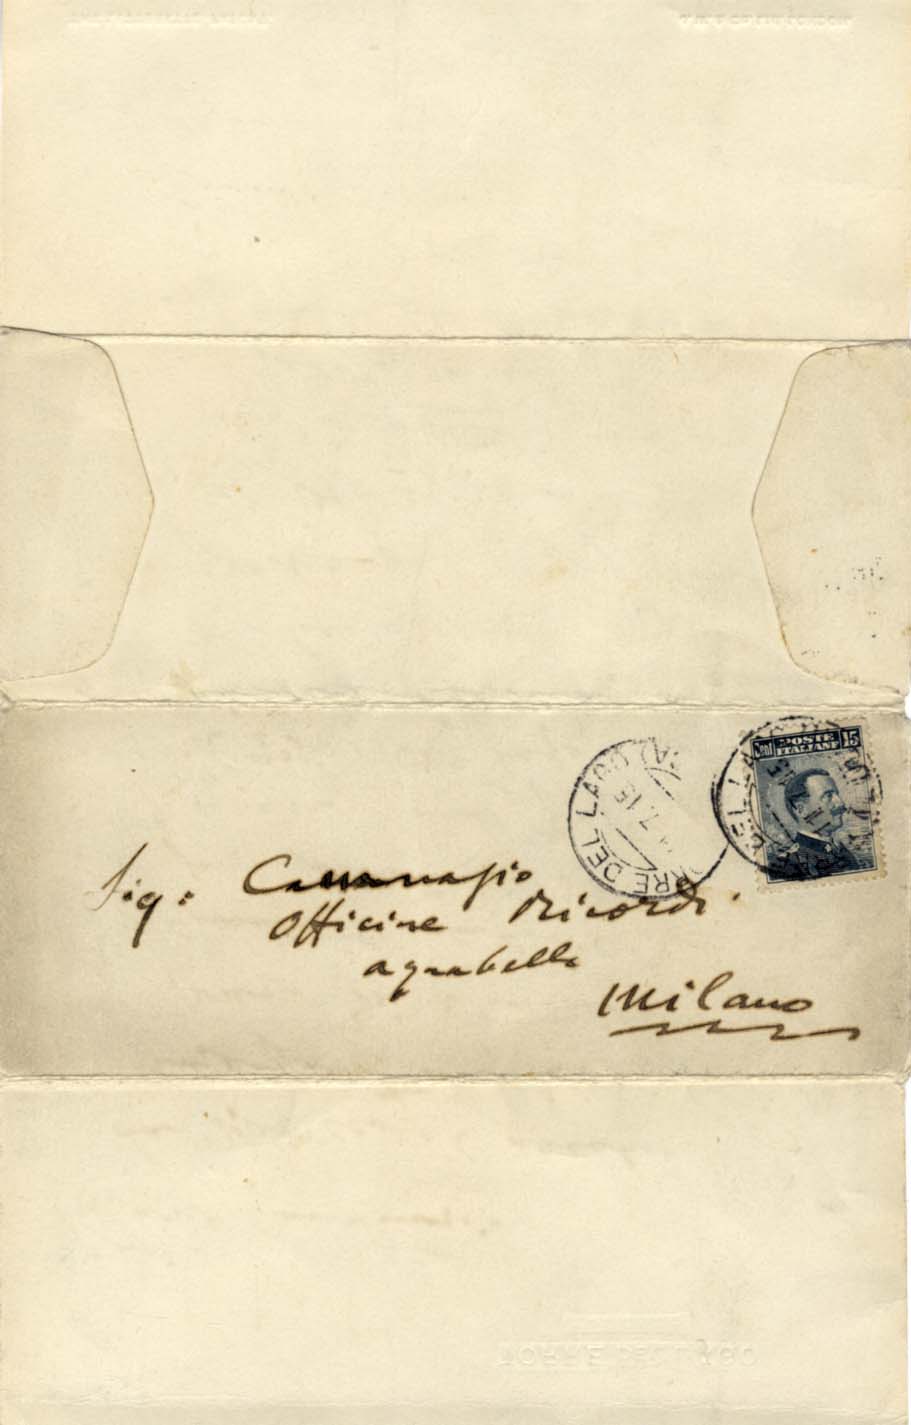 POSTE
ITALIANE
Cent 15
DEL LAGO
Sig:
Officine Ricordi.
agrabella
Milano
TORRE DEL LAGO